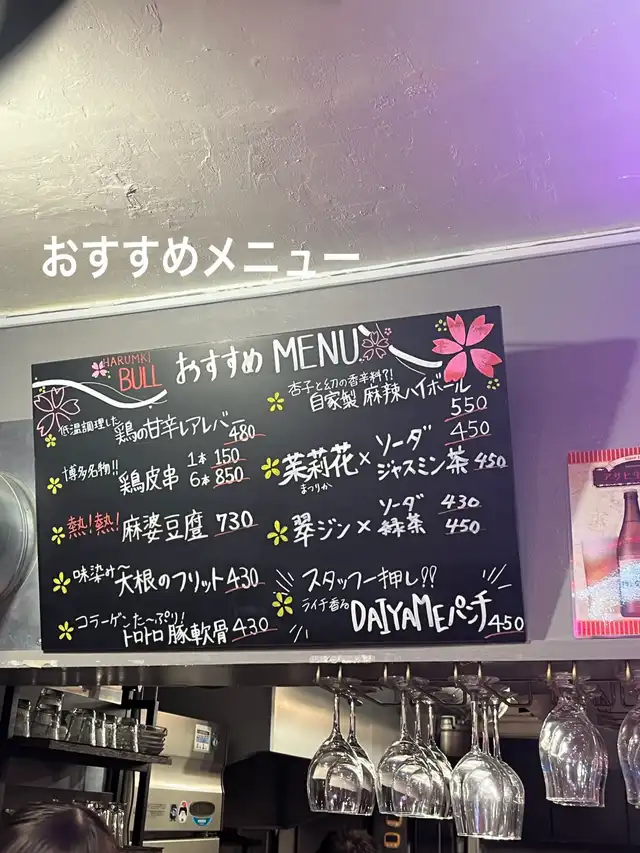 おすすめメニュー
HARUMKI
BULL
おすすめ MENU
低温調理した
鶏の甘辛レアレバー
480
博多名物!!
鶏皮串 1本 150
6本 850
熱!熱! 麻婆豆腐 730
味染み〜
大根のフリット 430
コラーゲンた〜ぷり!
トロトロ豚軟骨 430
杏子と幻の香辛料?!
自家製 麻辣ハイボール
550
茉莉花 × ソーダ 450
まつりか
ジャスミン茶 450
翠ジン × ソーダ 430
緑茶 450
スタッフ一押し!!
ライチ香る
DAIYAMEパンチ 450